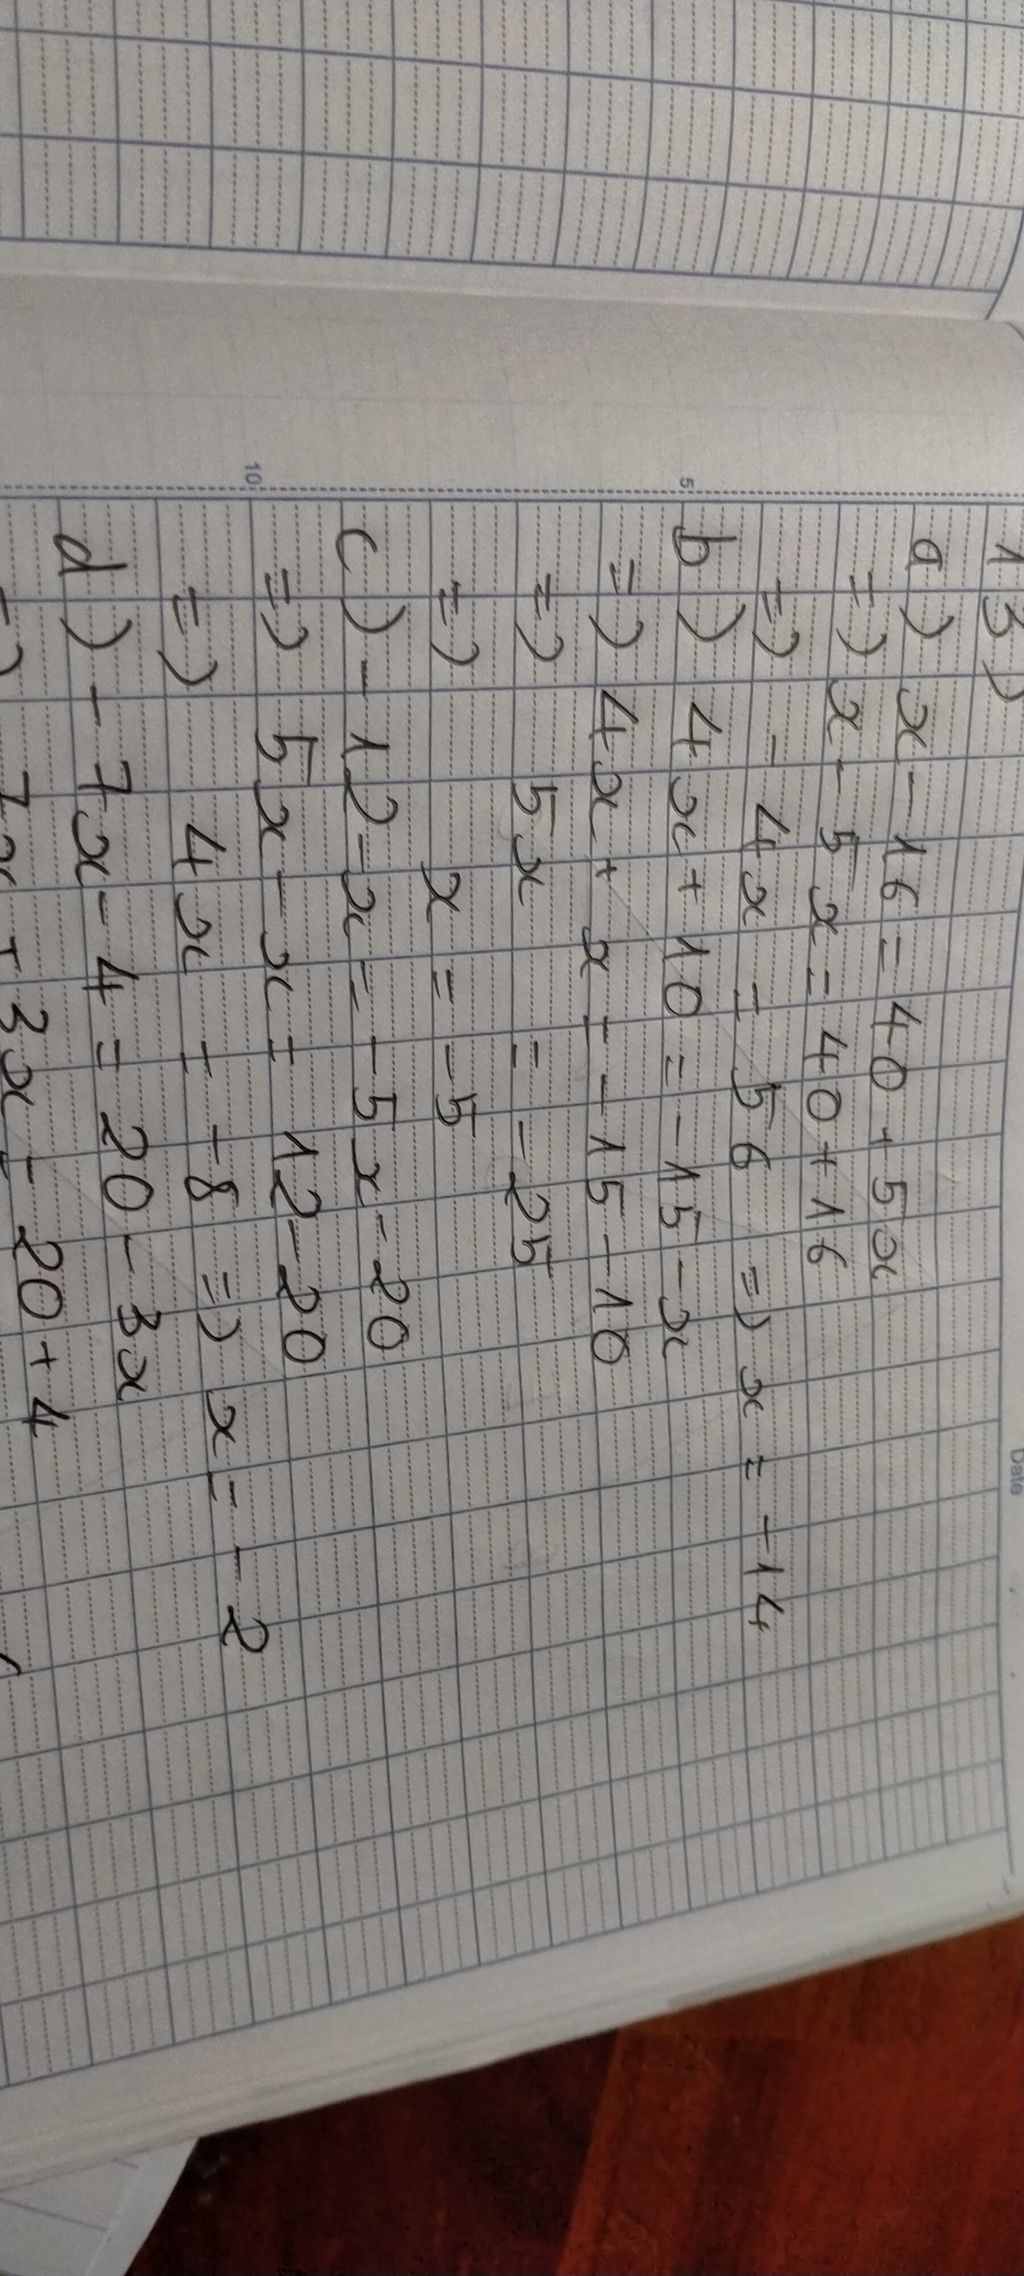 13)
a) x - 16 = 40 + 5x
=) x - 5x = 40 + 16
=) - 4x = 56 =) x = -14
b) 4x + 10 = -15 - x
=) 4x + x = -15 - 10
=) 5x = -25
=) x = -5
c) -12 - x = -5x - 20
=) 5x - x = 12 - 20
=) 4x = -8 =) x = -2
d) -7x - 4 = 20 - 3x
=) 7x + 3x = 20 + 4
5
10
Date